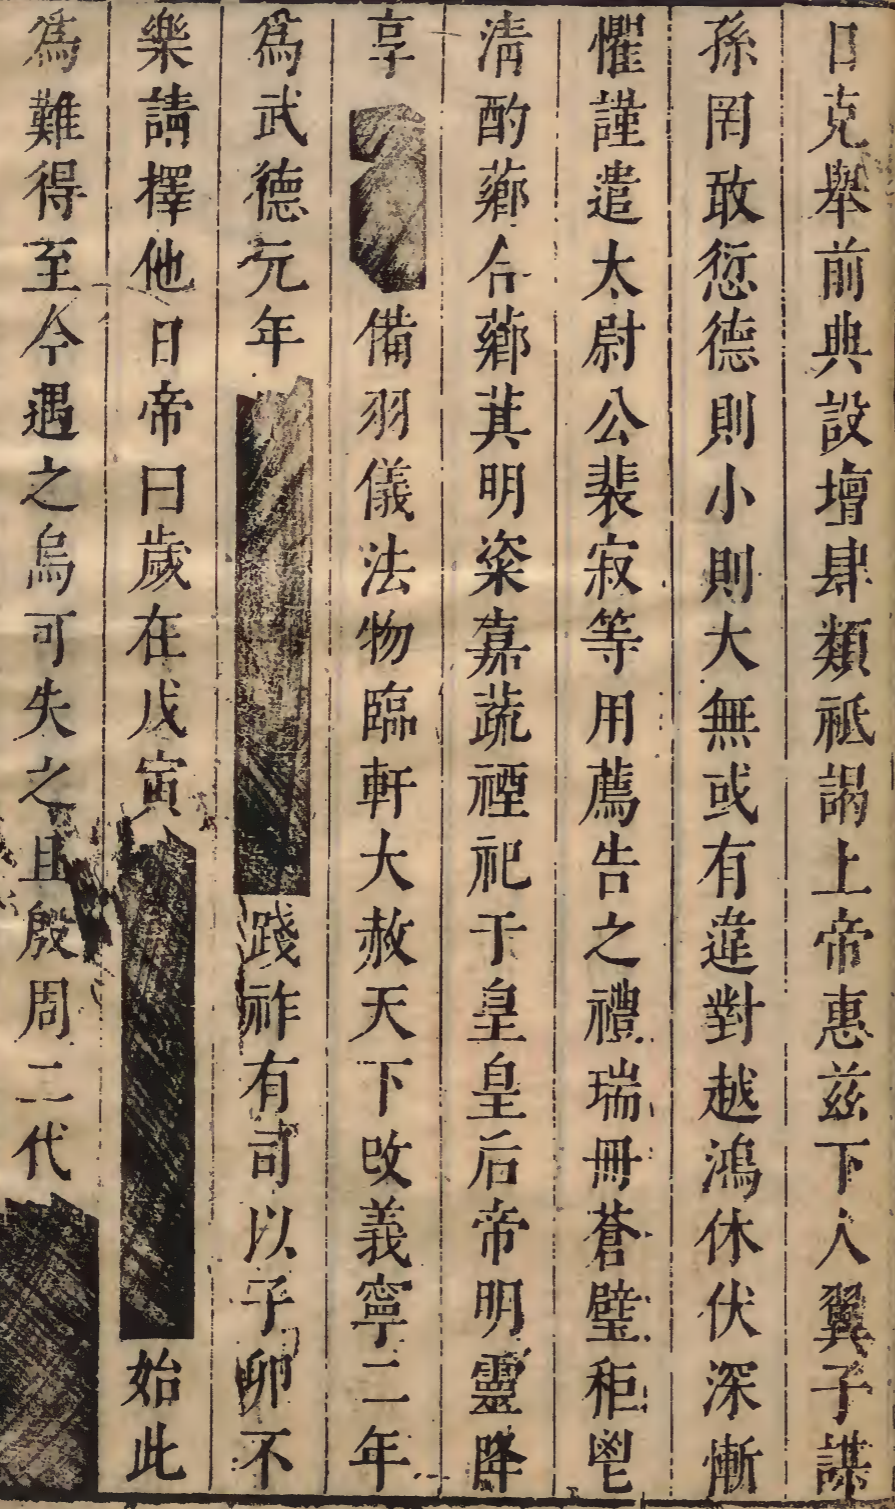 日克舉前典設壇肆類祗謁上帝惠茲下人翼子謀
孫罔敢愆德則小則大無或有違對越鴻休伏深慚
懼謹遣太尉公裴寂等用薦告之禮瑞冊蒼璧秬鬯
淸酌薌合薌萁明粢嘉蔬禋祀于皇皇后帝明靈降
享備羽儀法物臨軒大赦天下改義寧二年
爲武德元年踐祚有司以子卯不
樂請擇他日帝曰歲在戊寅始此
爲難得至今遇之烏可失之且殷周二代